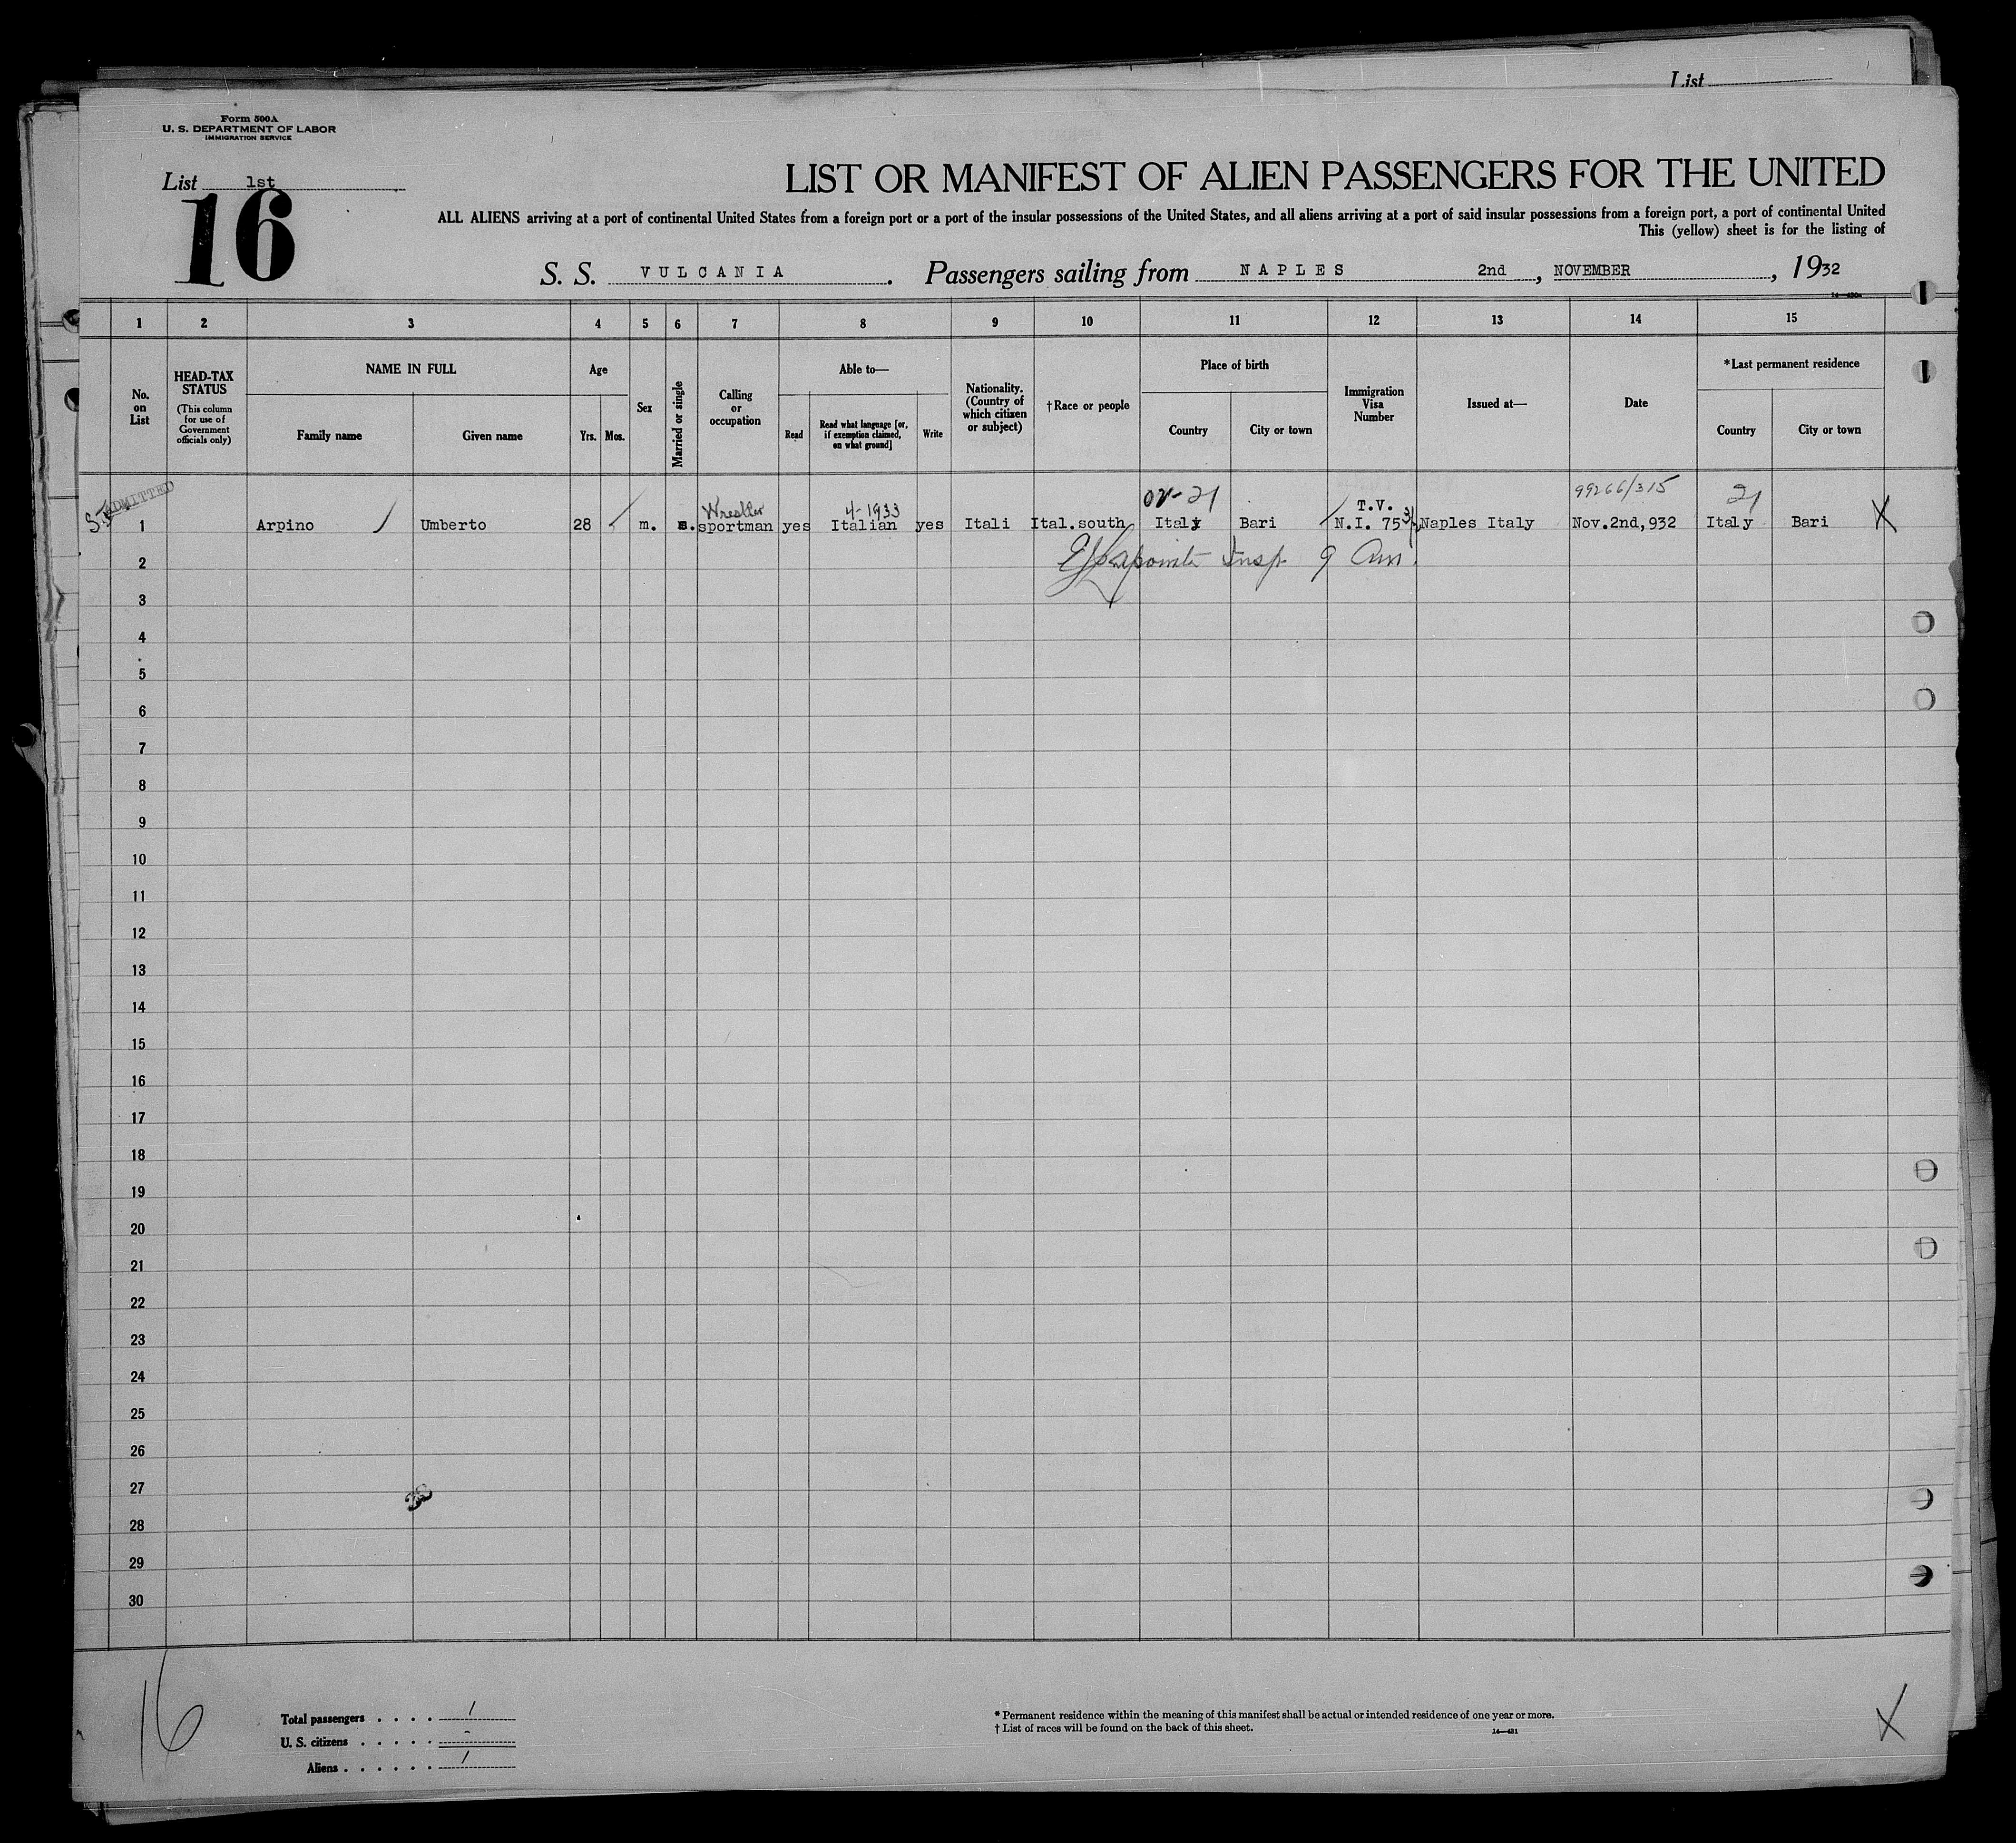 List
Form 500A
U. S. DEPARTMENT OF LABOR
IMMIGRATION SERVICE
List 1st
16
LIST OR MANIFEST OF ALIEN PASSENGERS FOR THE UNITED
ALL ALIENS arriving at a port of continental United States from a foreign port or a port of the insular possessions of the United States, and all aliens arriving at a port of said insular possessions from a foreign port, a port of continental United
This (yellow) sheet is for the listing of
S. S. VULCANIA. Passengers sailing from NAPLES 2nd, NOVEMBER, 1932
1 2 3 4 5 6 7 8 9 10 11 12 13 14 15
No. on List
HEAD-TAX STATUS
(This column for use of Government officials only)
NAME IN FULL
Family name
Given name
Age
Yrs. Mos.
Sex
Married or single
Calling or occupation
Able to—
Read
Read what language [or, if exemption claimed, on what ground]
Write
Nationality. (Country of which citizen or subject)
†Race or people
Place of birth
Country
City or town
Immigration Visa Number
Issued at—
Date
*Last permanent residence
Country
City or town
ADMITTED
Wrestler 4-1933 T.V. 99266/315 21
1 Arpino Umberto 28 m. s. sportman yes Italian yes Itali Ital.south Italy Bari N.I. 75 Naples Italy Nov.2nd,932 Italy Bari X
2 Insp.
3
4
5
6
7
8
9
10
11
12
13
14
15
16
17
18
19
20
21
22
23
24
25
26
27
28
29
30
16
Total passengers . . . . 1
U. S. citizens . . . . . -
Aliens . . . . . . 1
* Permanent residence within the meaning of this manifest shall be actual or intended residence of one year or more.
† List of races will be found on the back of this sheet.
14—431
X